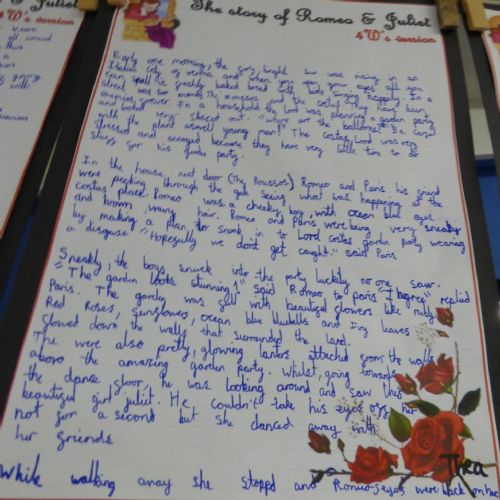 The story of Romeo & Juliet
4W's version
Early one morning, the big bright sun was rising in an
Italian city of verona and when you open your eyes all you
can smell is freshly baked bread with kids playing happily. In a
street was two enemies The Rousses and the costas they have been
enemies forever. In a household the lord was planning a garden party
and looked very stressed out. "where are the balloons? Be careful
with the plant uswell young man!" The costas Lord was very
stressed and annoyed because they have very little time to do
stuff for his garden party.
In the house next door (The Rousses) Romeo and Paris his friend
were peeking through the gate seeing what was happening at the
costas place. Romeo was a cheeky boy, with ocean blue eyes
and brown wavy hair. Romeo and Paris were being very sneaky
by making a plan to snank in to Lord costas garden party wearing
a disguise "Hopefully we dont get caught." said Paris
Sneakly, the boys snuck into the party luckily no one saw.
"The garden looks stunning," said Romeo to paris "I agree" replied
Paris. The garden was full with beautiful flowers like ruby
Red Roses, sunflowers, ocean blue bluebells and Ivy leaves
flowed down the walls that surrounded the land.
The were also pretty, glowing lanters attachd from the walls
above the amazing garden party. Whilst, going towards
the dance floor, he was looking around and saw this
beautiful girl juliet. He couldn't take his eyes off her
not for a second but she danced away with
her friends
While walking away she stoppd and Romeo's eyes were back on her
Thea